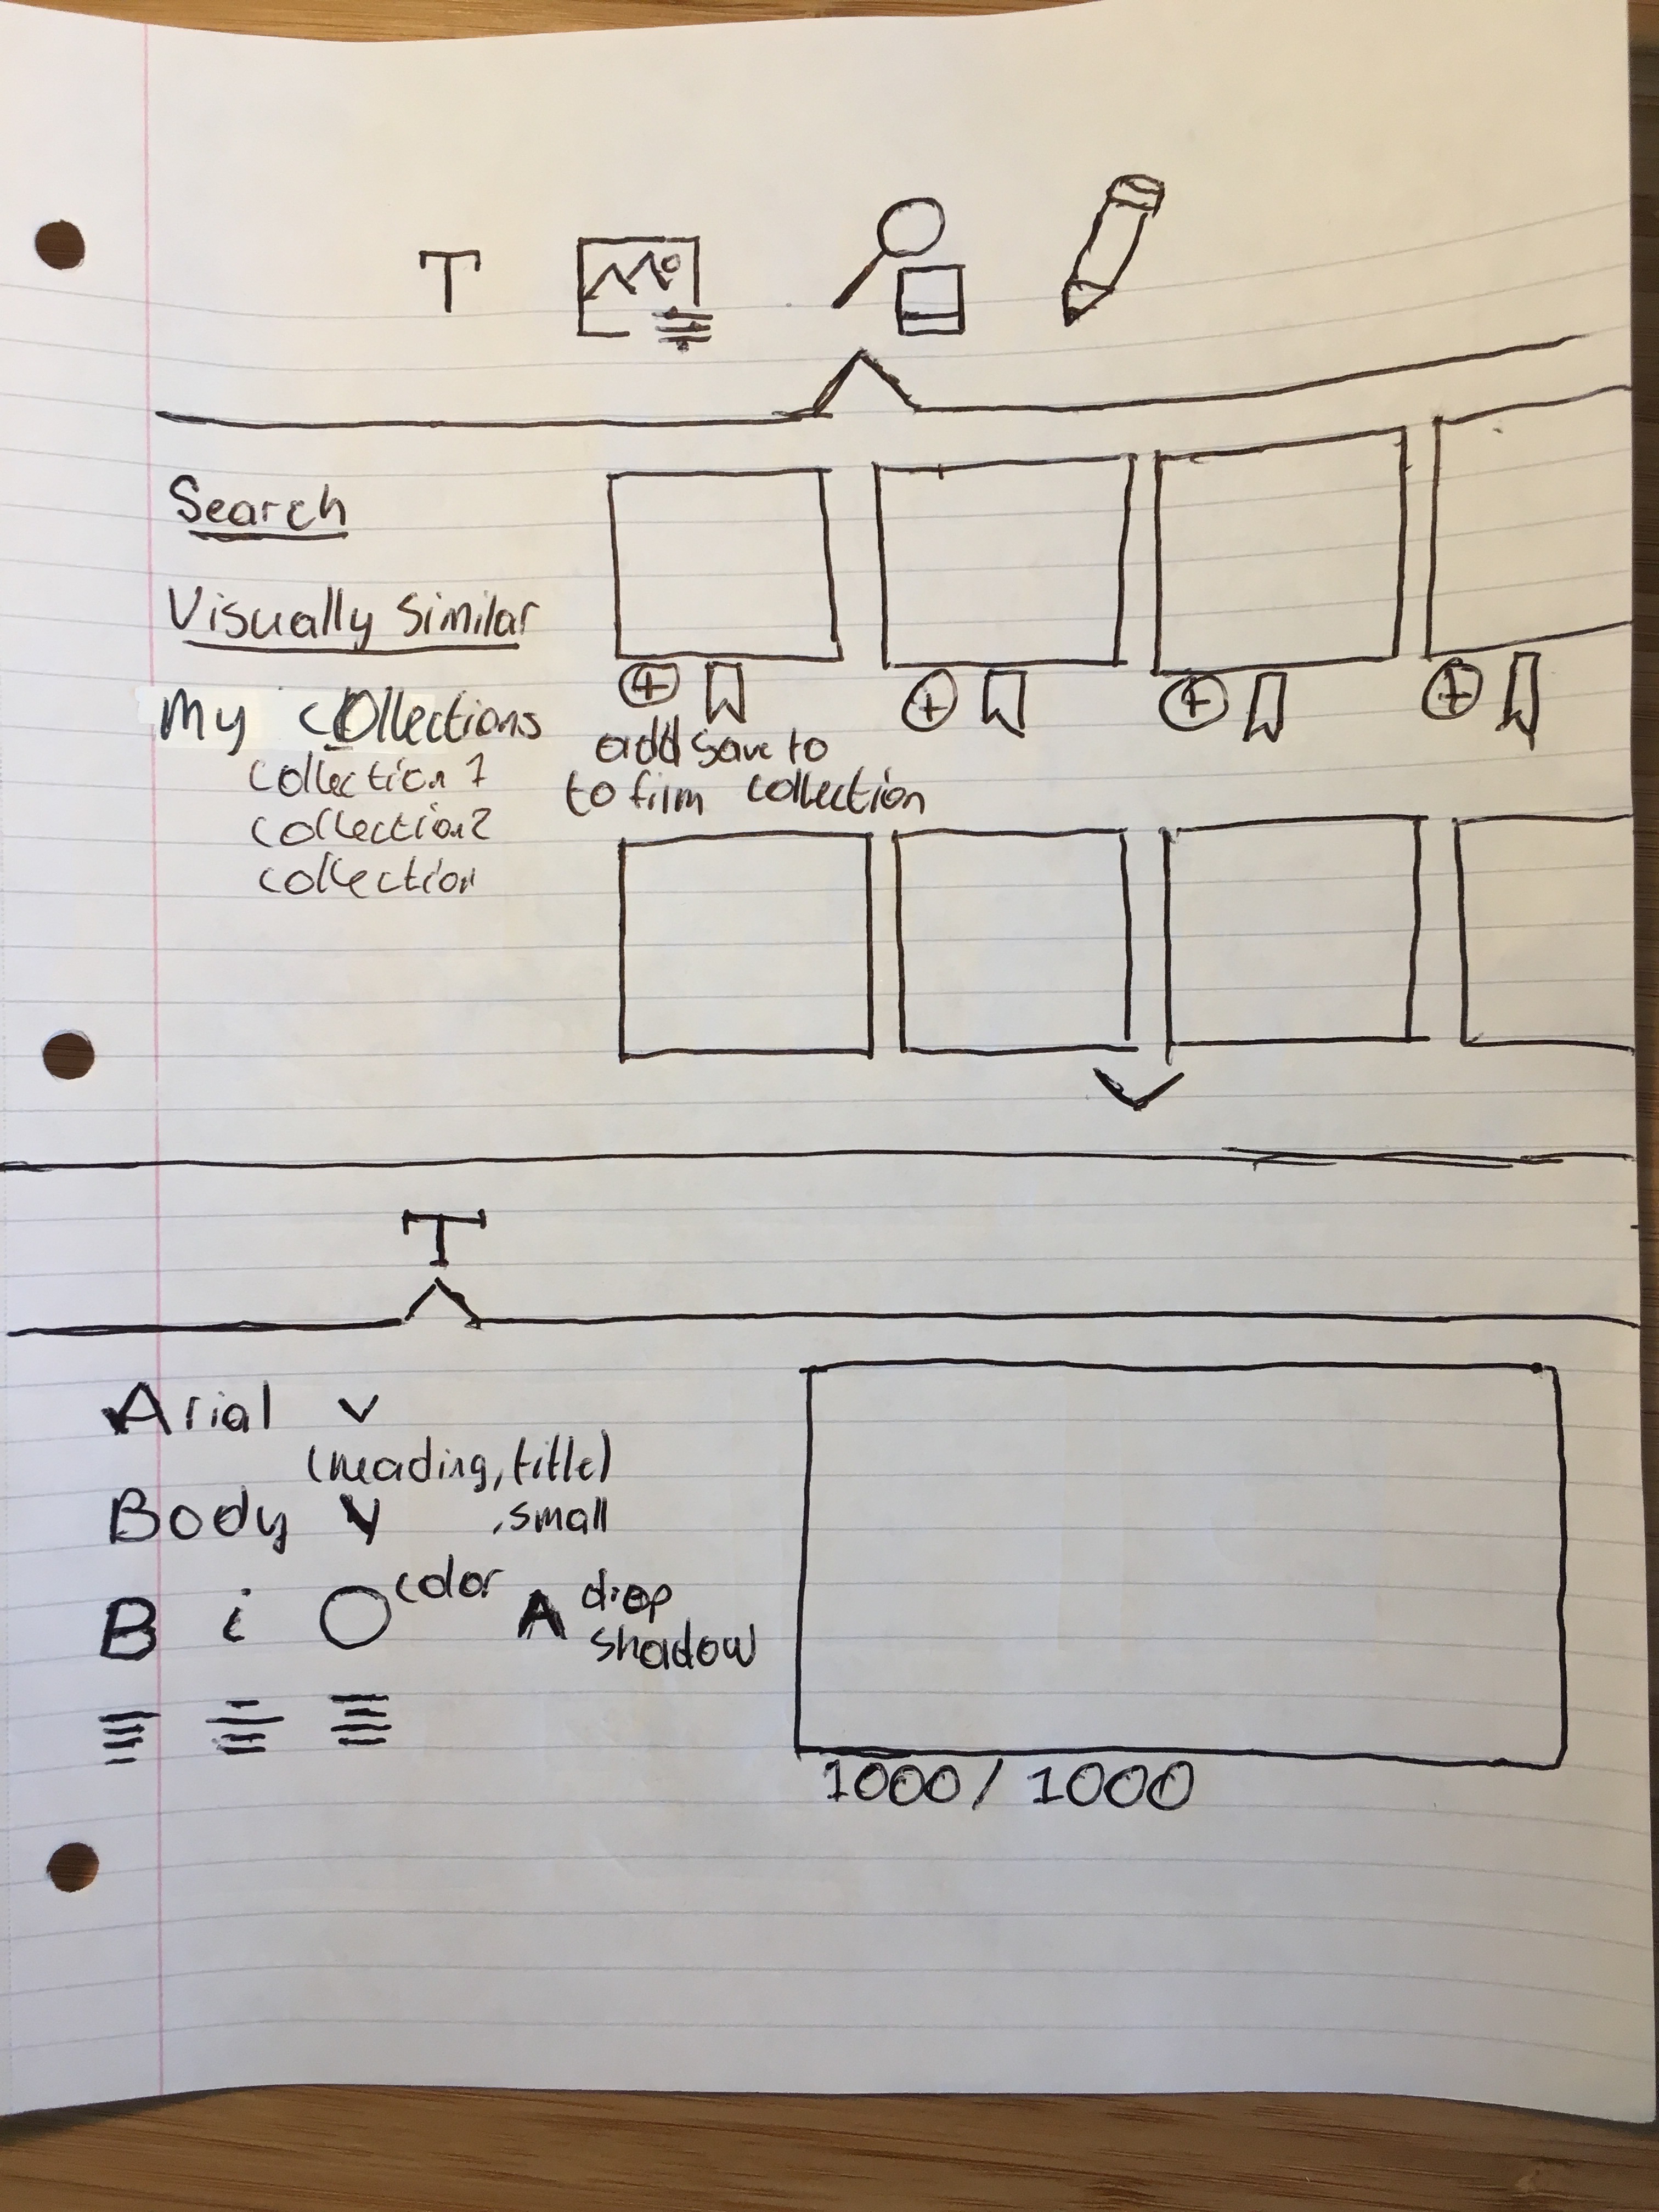 T
Search
Visually Similar
My Collections
Collection 1
Collection 2
Collection
add save to
to film collection
T
Arial
(heading, title)
Body , small
B i color A drop
shadow
1000 / 1000